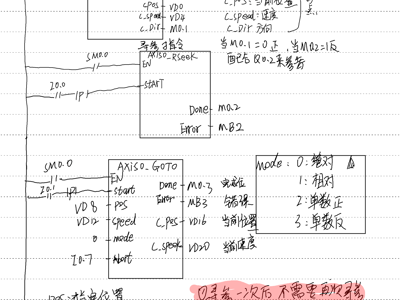 C_pos - VD0
C_speed - VD4
C_Dir - M0.1
C_pos:当前位置
C_speed:速度
C_Dir 方向
寻参指令
当M0.1=0正,当M0.2=1反
配合Q0.2来参考
SM0.0
AXIS0_RSeek
EN
I0.0
P
START
Done - M0.2
Error - MB2
SM0.0
AXIS0_GOTO
EN
I0.1
P
start
Done - M0.3 完成位
Error - MB3 错误
VD8 - pos
VD12 - speed
C_pos - VD16 当前位置
0 - mode
C_speek - VD20 当前速度
I0.7 - Abort
mode:0:绝对
1:相对
2:单数正
3:单数反